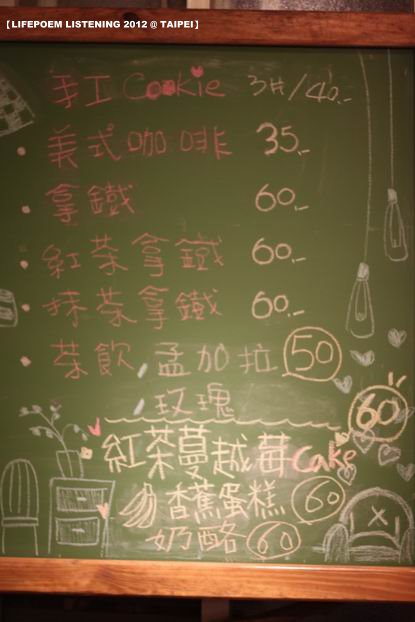 【LIFEPOEM LISTENING 2012 @ TAIPEI】
手工 Cookie 3片/40.-
美式咖啡 35.-
拿鐵 60.-
紅茶拿鐵 60.-
抹茶拿鐵 60.-
茶飲,孟加拉 50
,玫瑰
60
紅茶蔓越莓 Cake
香蕉蛋糕 60
奶酪 60